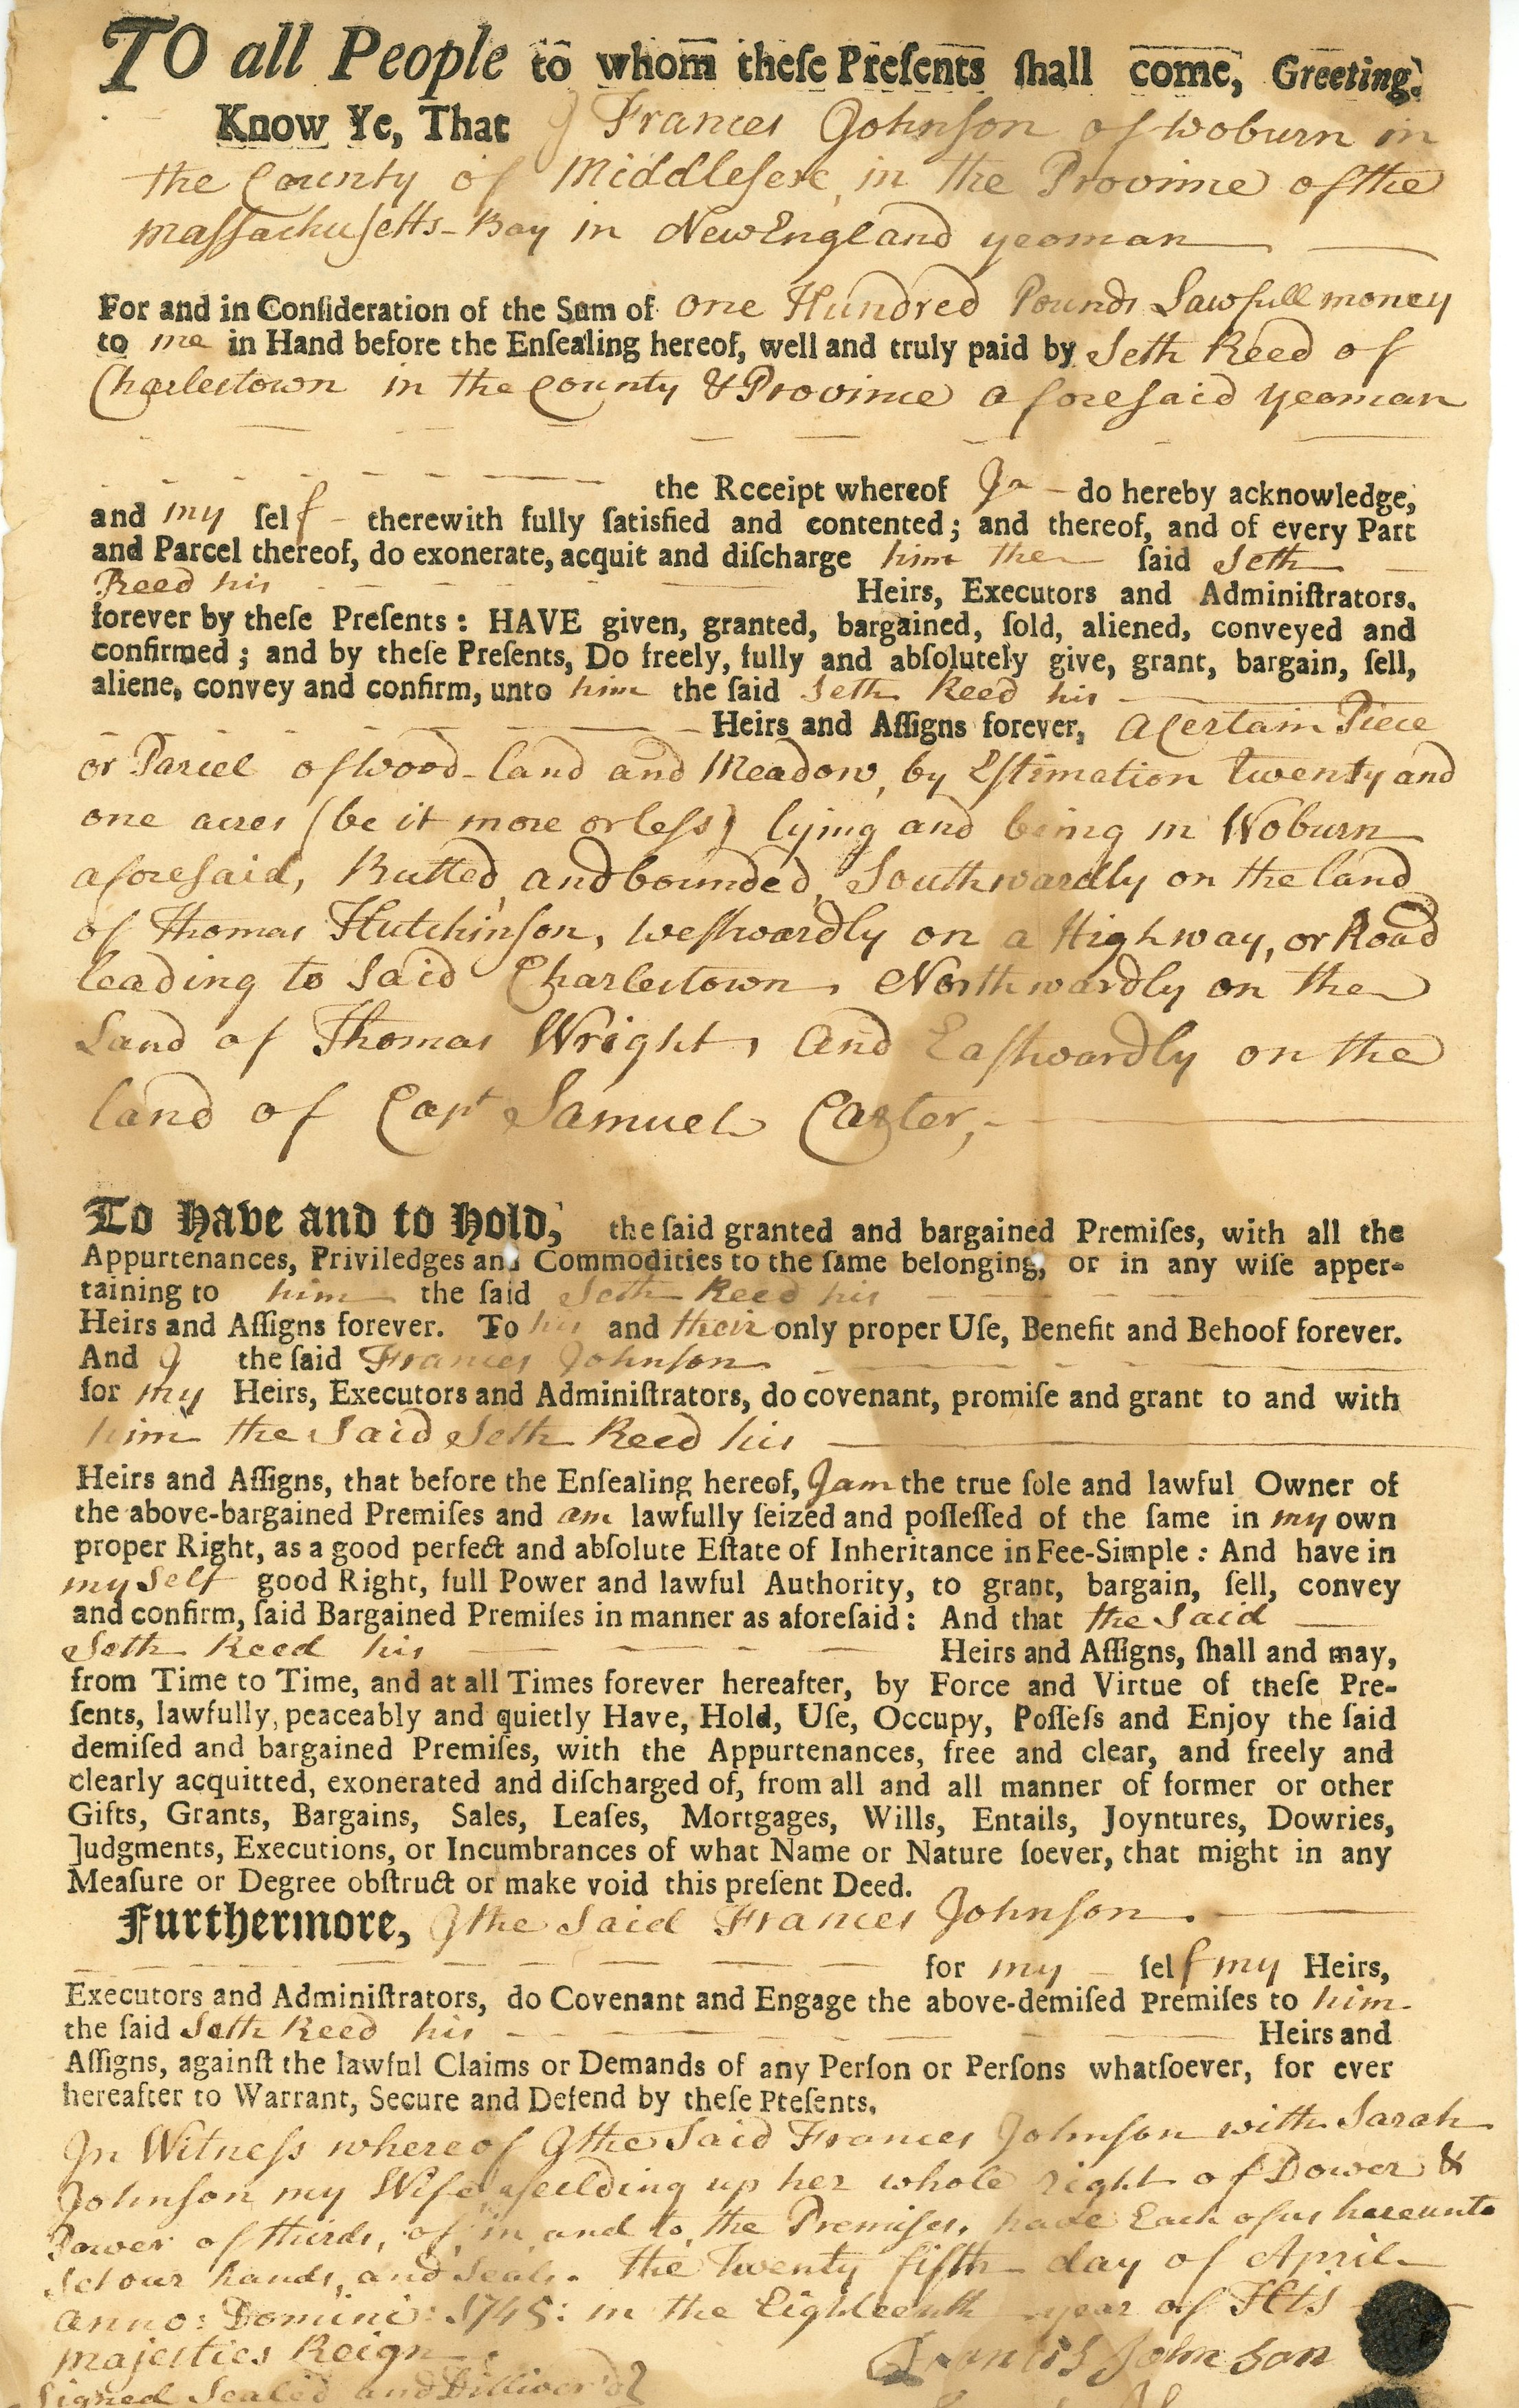 TO all People to whom theſe Preſents ſhall come, Greeting.
Know Ye, That I Frances Johnſon of Woburn in
the County of Middleſex, in the Province of the
Maſſachuſetts-Bay in New England yeoman
For and in Conſideration of the Sum of one Hundred Pounds Lawfull money
to me in Hand before the Enſealing hereof, well and truly paid by Seth Reed of
Charlestown in the County & Province aforeſaid yeoman
the Receipt whereof I do hereby acknowledge,
and my ſelf therewith fully ſatisfied and contented; and thereof, and of every Part
and Parcel thereof, do exonerate, acquit and diſcharge him the ſaid Seth
Reed his Heirs, Executors and Adminiſtrators,
forever by theſe Preſents: HAVE given, granted, bargained, ſold, aliened, conveyed and
confirmed; and by theſe Preſents, Do freely, fully and abſolutely give, grant, bargain, ſell,
aliene, convey and confirm, unto him the ſaid Seth Reed his
Heirs and Aſſigns forever, a Certain Piece
or Parcel of Wood-land and Meadow, by Eſtimation twenty and
one acres (be it more or leſs) lying and being in Woburn
aforeſaid, Butted and bounded, Southwardly on the land
of Thomas Hutchinſon, Weſtwardly on a Highway, or Road
leading to Said Charlestown, Northwardly on the
Land of Thomas Wright, and Eaſtwardly on the
land of Capt Samuel Carter,
To Have and to Hold, the ſaid granted and bargained Premiſes, with all the
Appurtenances, Priviledges and Commodities to the ſame belonging, or in any wiſe apper-
taining to him the ſaid Seth Reed his
Heirs and Aſſigns forever. To his and their only proper Uſe, Benefit and Behoof forever.
And I the ſaid Frances Johnſon
for my Heirs, Executors and Adminiſtrators, do covenant, promiſe and grant to and with
him the Said Seth Reed his
Heirs and Aſſigns, that before the Enſealing hereof, I am the true ſole and lawful Owner of
the above-bargained Premiſes and am lawfully ſeized and poſſeſſed of the ſame in my own
proper Right, as a good perfect and abſolute Eſtate of Inheritance in Fee-Simple: And have in
my Self good Right, full Power and lawful Authority, to grant, bargain, ſell, convey
and confirm, ſaid Bargained Premiſes in manner as aforeſaid: And that the Said
Seth Reed his Heirs and Aſſigns, ſhall and may,
from Time to Time, and at all Times forever hereafter, by Force and Virtue of theſe Pre-
ſents, lawfully, peaceably and quietly Have, Hold, Uſe, Occupy, Poſſeſs and Enjoy the ſaid
demiſed and bargained Premiſes, with the Appurtenances, free and clear, and freely and
clearly acquitted, exonerated and diſcharged of, from all and all manner of former or other
Gifts, Grants, Bargains, Sales, Leaſes, Mortgages, Wills, Entails, Joyntures, Dowries,
Judgments, Executions, or Incumbrances of what Name or Nature ſoever, that might in any
Meaſure or Degree obſtruct or make void this preſent Deed.
Furthermore, I the Said Frances Johnſon
for my ſelf my Heirs,
Executors and Adminiſtrators, do Covenant and Engage the above-demiſed Premiſes to him
the ſaid Seth Reed his Heirs and
Aſſigns, againſt the lawful Claims or Demands of any Perſon or Perſons whatſoever, for ever
hereafter to Warrant, Secure and Defend by theſe Preſents.
In Witneſs whereof I the Said Frances Johnſon with Sarah
Johnſon my Wife yeilding up her whole right of Dower &
Power of thirds, of, in, and to, the Premiſes, have Each of us hereunto
Set our hands, and Seals. the Twenty fifth day of April
anno: Domini: 1745: in the Eighteenth year of His
majesties Reign
Francis Johnson
Signed Sealed and Dilliver'd